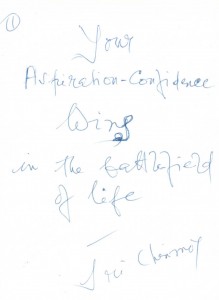 1
Your
Aspiration-Confidence
Wins
in the battlefield
of life
—
Sri Chinmoy